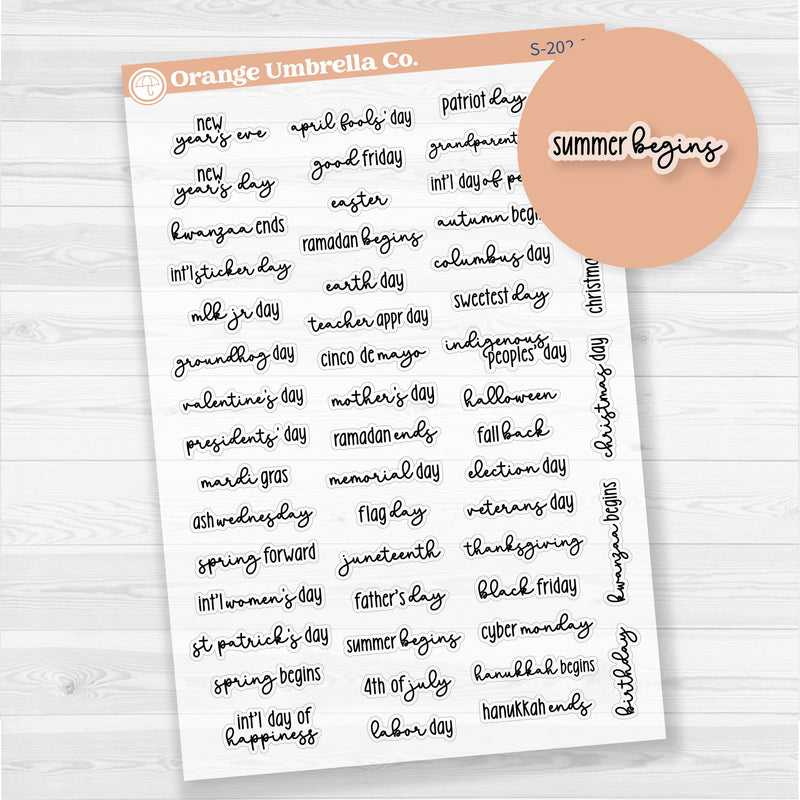 Orange Umbrella Co.
S-202
new
year's eve
new
year's day
kwanzaa ends
int'l sticker day
mlk jr day
groundhog day
valentine's day
presidents' day
mardi gras
ash wednesday
spring forward
int'l women's day
st patrick's day
spring begins
int'l day of
happiness
april fools' day
good friday
easter
ramadan begins
earth day
teacher appr day
cinco de mayo
mother's day
ramadan ends
memorial day
flag day
juneteenth
father's day
summer begins
4th of july
labor day
patriot day
int'l day of
autumn
columbus day
sweetest day
indigenous
peoples' day
halloween
fall back
election day
veterans day
thanksgiving
black friday
cyber monday
hanukkah begins
hanukkah ends
christmas day
kwanzaa begins
birthday
summer begins